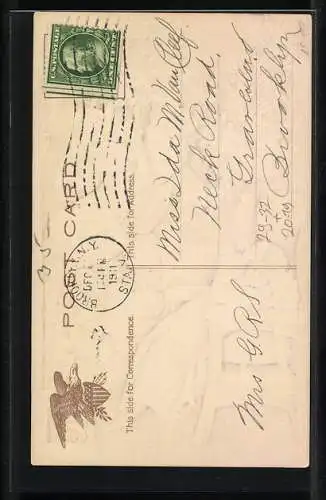 U.S. POSTAGE
POST CARD
BROOKLYN, N.Y.
DEC
1911
STA.
35
This side for Correspondence.
This side for Address.
Miss Ida M. Van Cleef
Neck Road.
Gravesend
Brooklyn
29-32
+
20
Mrs G.R.S.